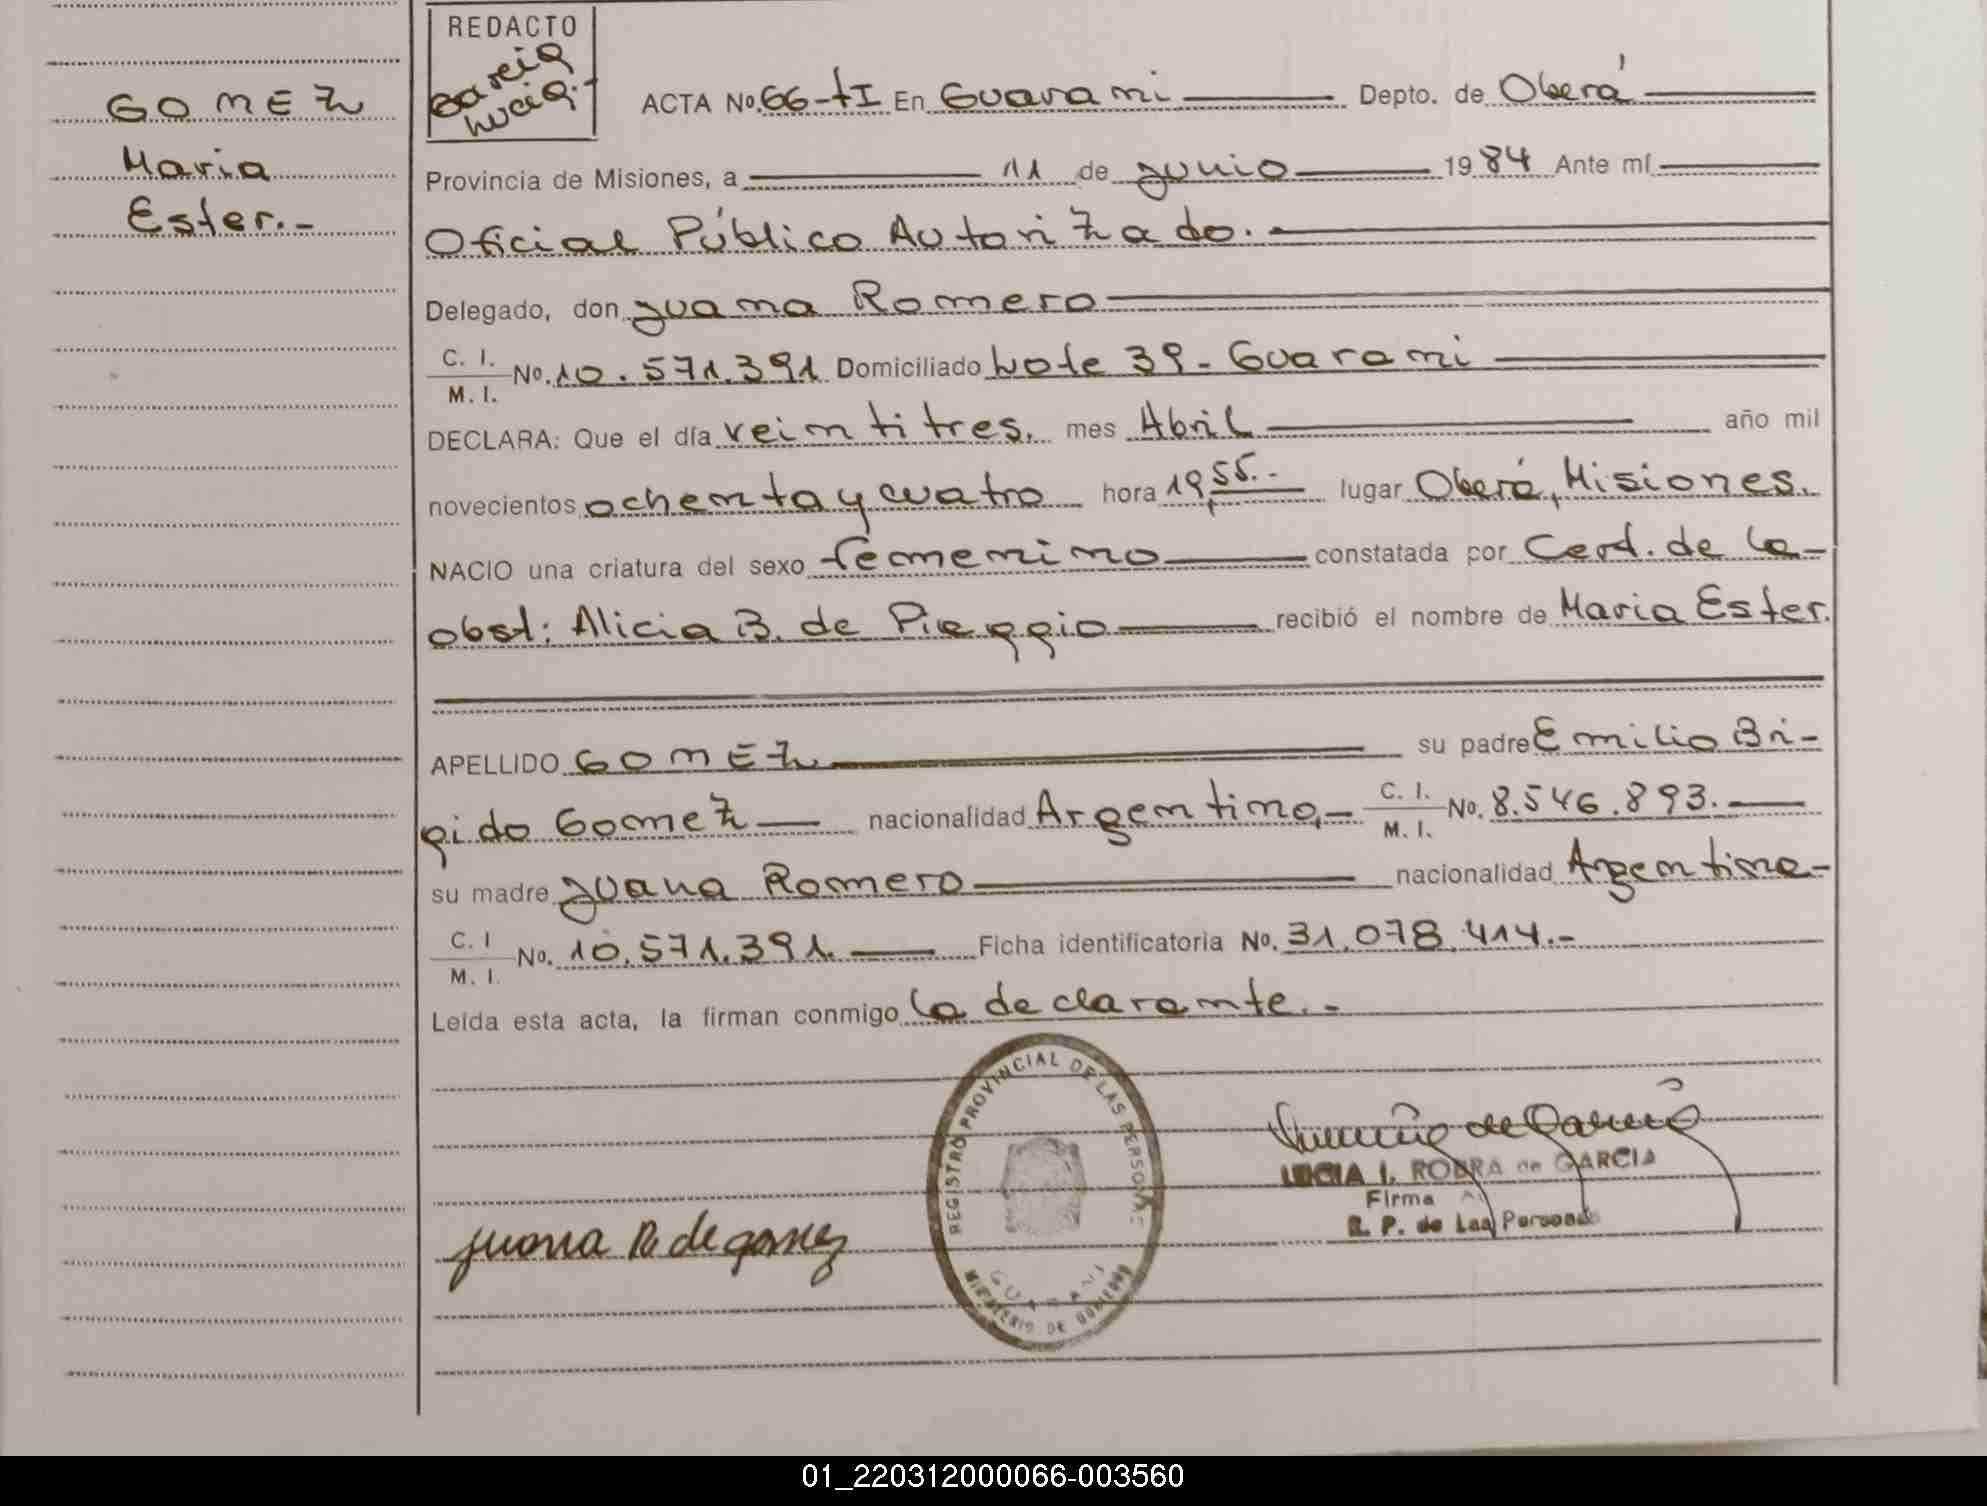 REDACTO
Garcia
Lucia.-
GOMEZ
Maria
Ester.-
ACTA No. 66-tI En Guarani Depto. de Oberá
Provincia de Misiones, a 11 de junio 1984 Ante mí
Oficial Público Autorizado.
Delegado, don Juana Romero
C. I.
M. I. No. 10.571.391 Domiciliado Lote 39 - Guarani
DECLARA: Que el día veintitres. mes Abril año mil
novecientos ochenta y cuatro hora 19,55.- lugar Oberá, Misiones.
NACIO una criatura del sexo femenino constatada por Cert. de la
obst: Alicia B. de Pieggio recibió el nombre de Maria Ester.
APELLIDO GOMEZ su padre Emilio Bri-
gido Gomez nacionalidad Argentino,- C. I.
M. I. No. 8.546.893.
su madre Juana Romero nacionalidad Argentina-
C. I
M. I. No. 10.571.391. Ficha identificatoria No. 31.078.414.-
Leída esta acta, la firman conmigo la declarante.-
REGISTRO PROVINCIAL DE LAS PERSONAS
GUARANI
MINISTERIO DE GOBIERNO
Juana R. de gomez
LUCIA I. ROBRA de GARCIA
Firma
R. P. de Las Personas
01_220312000066-003560